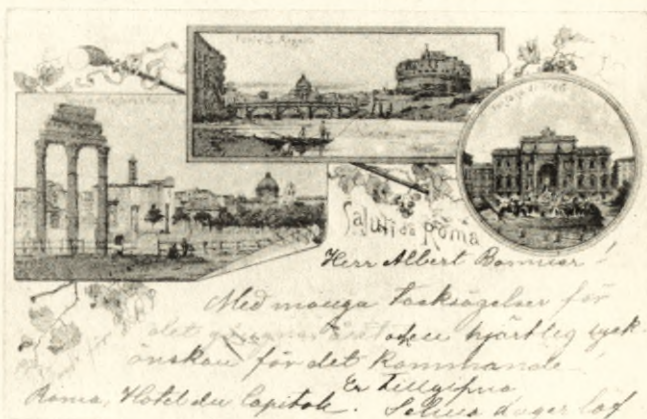 Ponte S. Angelo
Saluti da Roma
Herr Albert Bonnier!
Med många tacksägelser för
det året och en hjärtlig lyck-
önskan för det kommande
Er tillgifna
Roma, Hotel du Capitole. Selma Lagerlöf